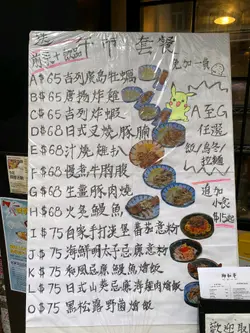 午市套餐
A $65 吉列廣島牡蠣
B $65 唐揚炸雞
C $65 吉列炸蝦
D $68 日式叉燒豚腩
E $68 汁燒雞扒
F $68 慢煮牛胸腹
G $68 生薑豚肉燒
H $68 火炙鰻魚
I $75 自家手打漢堡蕃茄意粉
J $75 海鮮明太子忌廉意粉
K $75 和風忌廉鰻魚燴飯
L $75 日式山葵忌廉海皇肉燴飯
O $75 黑松露野菌燴飯
A至G
任選
飯/烏冬/
拉麵
追加
小食